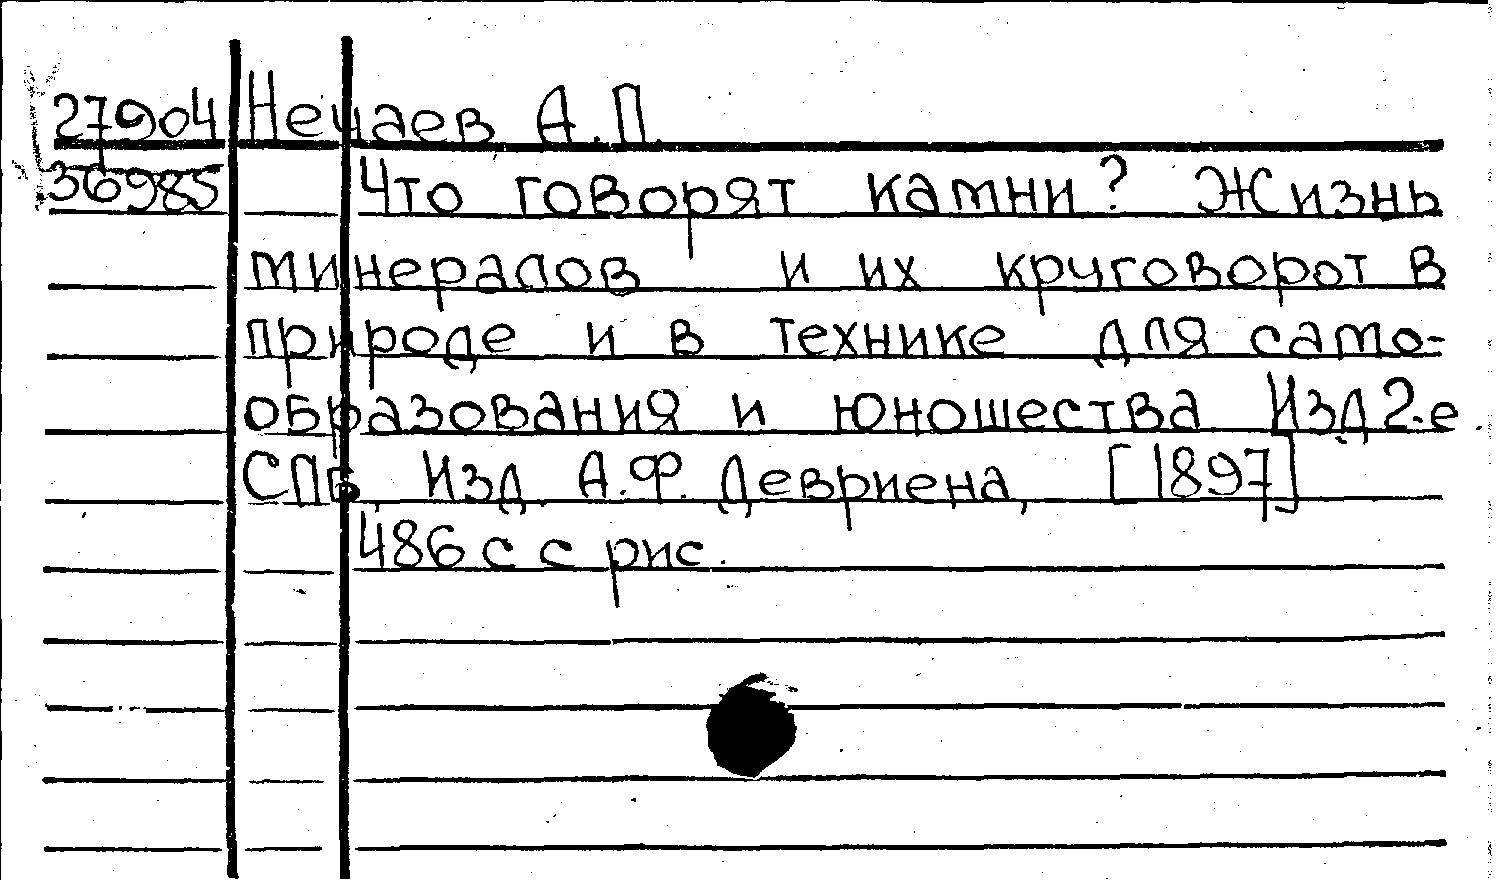 27904 Нечаев А.П.
36985 Что говорят камни? Жизнь
минералов и их круговорот в
природе и в технике для само-
образования и юношества Изд 2-е.
СПб, Изд. А.Ф. Девриена, [1897]
486 с с рис.